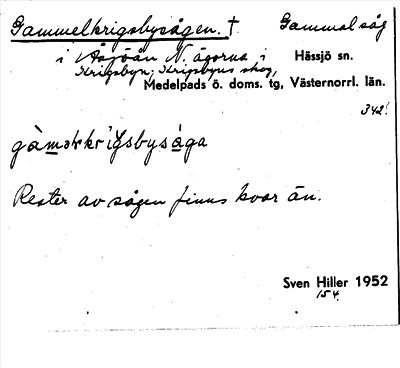 Gammelkrigsbysågen. † Gammal såg
i Åsjöån N. ägorna i Hässjö sn.
Krigsbyn; Krigsbyns skog,
Medelpads ö. doms. tg, Västernorrl. län.
342!
Rester av sågen finns kvar än.
Sven Hiller 1952
154